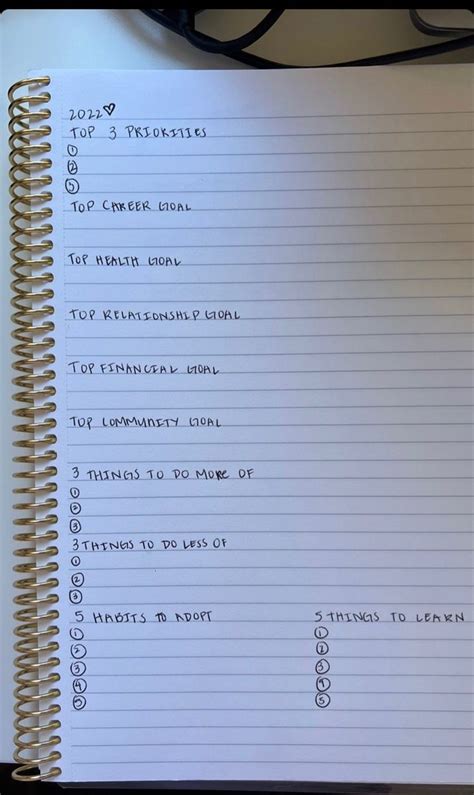 2022♡
TOP 3 PRIORITIES
①
②
③
TOP CAREER GOAL
TOP HEALTH GOAL
TOP RELATIONSHIP GOAL
TOP FINANCIAL GOAL
TOP COMMUNITY GOAL
3 THINGS TO DO MORE OF
①
②
③
3 THINGS TO DO LESS OF
①
②
③
5 HABITS TO ADOPT
①
②
③
④
⑤
5 THINGS TO LEARN
①
②
③
④
⑤